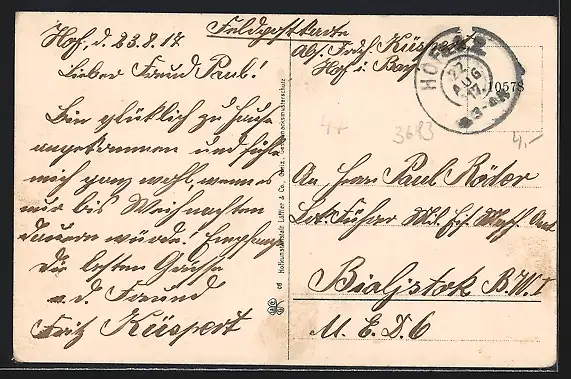 Feldpostkarte
Hof, d. 23.8.17
Lieber Freund Paul!
Bin glücklich zu Hause
angekommen und fühle
mich ganz wohl, wenn es
nur bis Weihnachten
dauern würde. Empfange
die besten Grüsse
v. d. Freund
Fritz Küspert
Abs. Küspert
Hof i. Bay.
HOF
22
AUG
17
3-4
10578
47
3683
4,-
An Herrn Paul Röder
Lok. Führer Mil. Eis.
Bialjstok B.W.I
M. E. D. 6
06 Hofkunstanstalt Löffler & Co., Greiz.